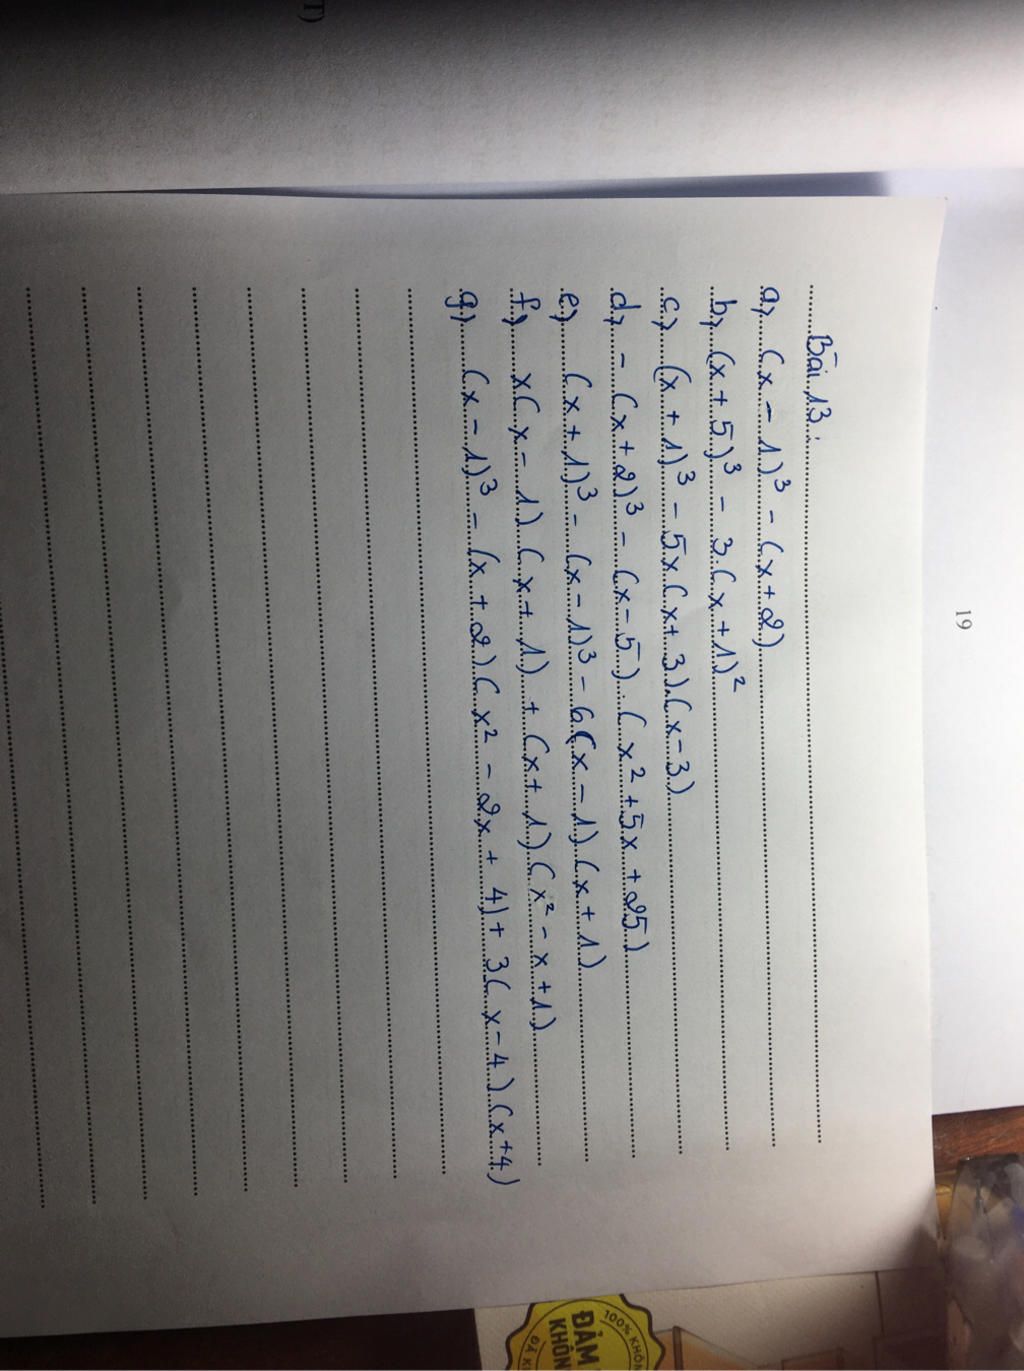 19
Bài 13:
a, (x - 1)³ - (x + 2)
b, (x + 5)³ - 3.(x + 1)²
c, (x + 1)³ - 5x.(x + 3).(x - 3)
d, - (x + 2)³ - (x - 5).(x² + 5x + 25)
e, (x + 1)³ - (x - 1)³ - 6(x - 1).(x + 1)
f, x(x - 1).(x + 1) + (x + 1).(x² - x + 1)
g, (x - 1)³ - (x + 2).(x² - 2x + 4) + 3(x - 4).(x + 4)
100% KHÔN
ĐẢM
KHÔN